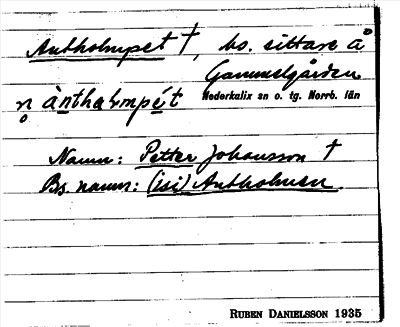 Antholmpet †, bs. sittare å
Gammelgården
Nederkalix sn o. tg. Norrb. län
ànthαlmpét
Namn: Petter Johansson †
Bs. namn: (isi) Antholmen.
RUBEN DANIELSSON 1935